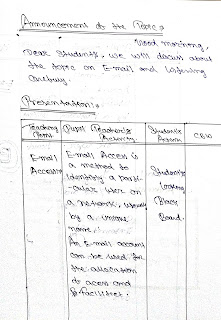 Announcement of the Topic:-
Good morning,
Dear Students, we will discuss about
the topic on E-mail and Listening
Carefully.
Presentation:-
Teaching Point | Pupil Teacher's Activity | Student's Activity | CBW
E-mail Access | E-mail Access is
a method to
identify a parti-
-cular user on
a network,
by a unique
name.
An E-mail account
can be used for
the allocation
of access and
facilities.
Students
looking
Black
Board.